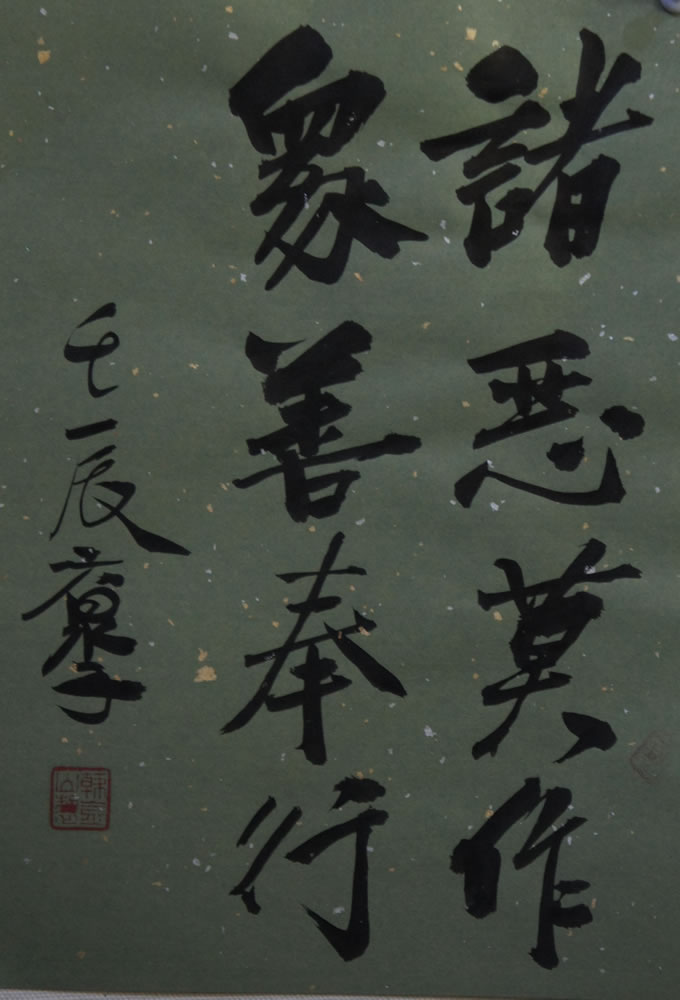 諸惡莫作
眾善奉行
壬辰